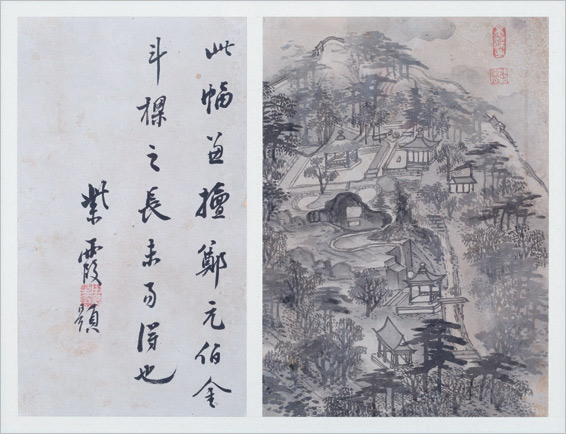 此幅兼擅鄭元伯金
斗樑之長未易得也
紫霞題